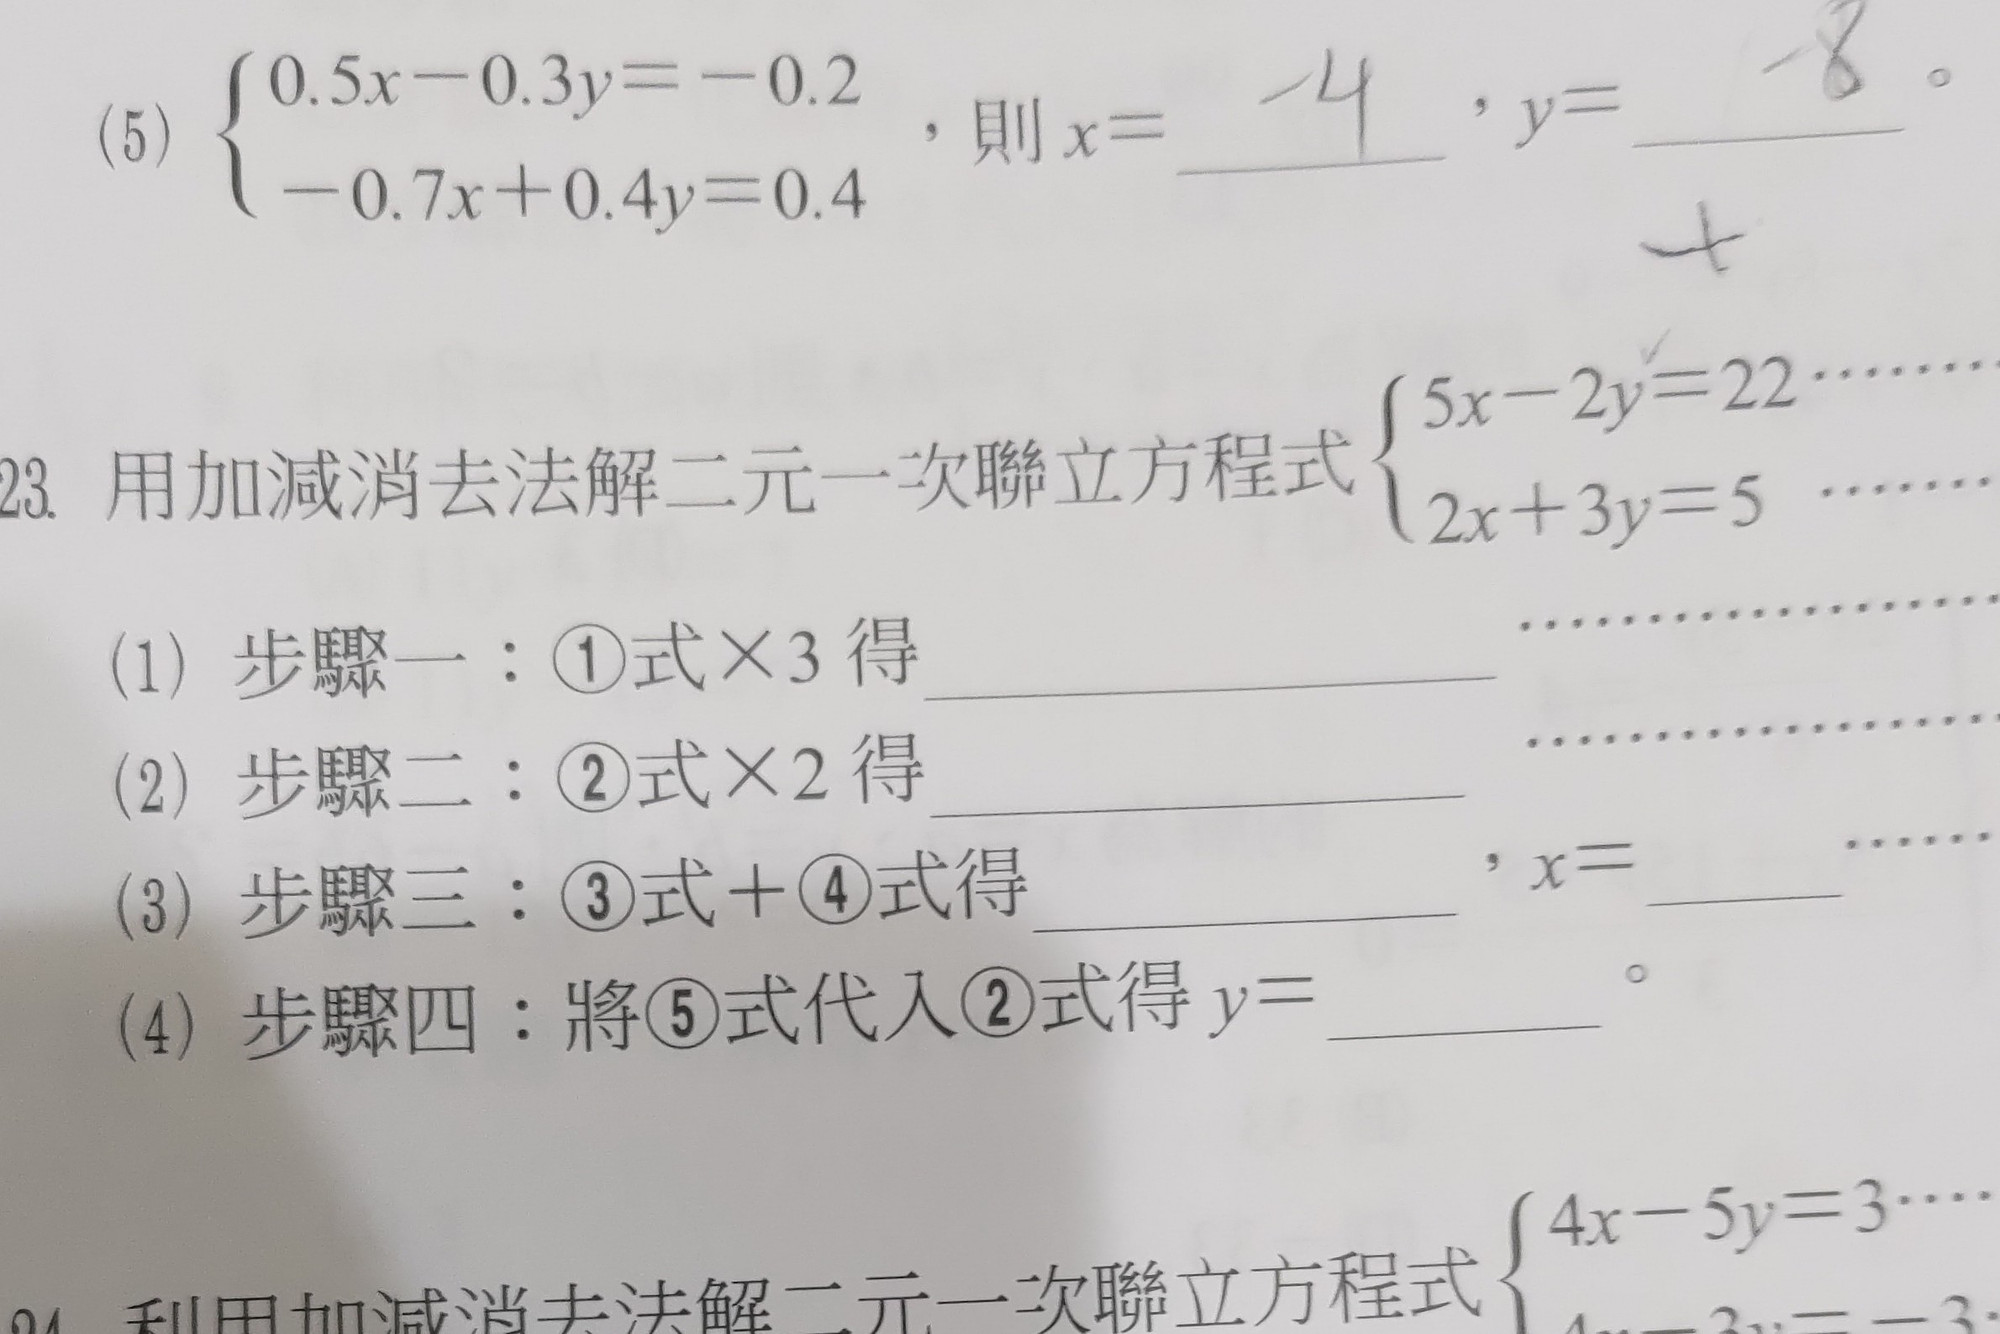 (5) { 0.5x－0.3y＝－0.2
－0.7x＋0.4y＝0.4 ，則 x＝ -4 ，y＝ -8 。
+
23. 用加減消去法解二元一次聯立方程式 { 5x－2y＝22………
✓
2x＋3y＝5 ………
(1) 步驟一：①式×3 得＿＿＿＿ ………
(2) 步驟二：②式×2 得＿＿＿＿ ………
(3) 步驟三：③式＋④式得＿＿＿＿，x＝＿＿ ……
(4) 步驟四：將⑤式代入②式得 y＝＿＿＿。
24. 利用加減消去法解二元一次聯立方程式 { 4x－5y＝3……
4x－3y＝－3